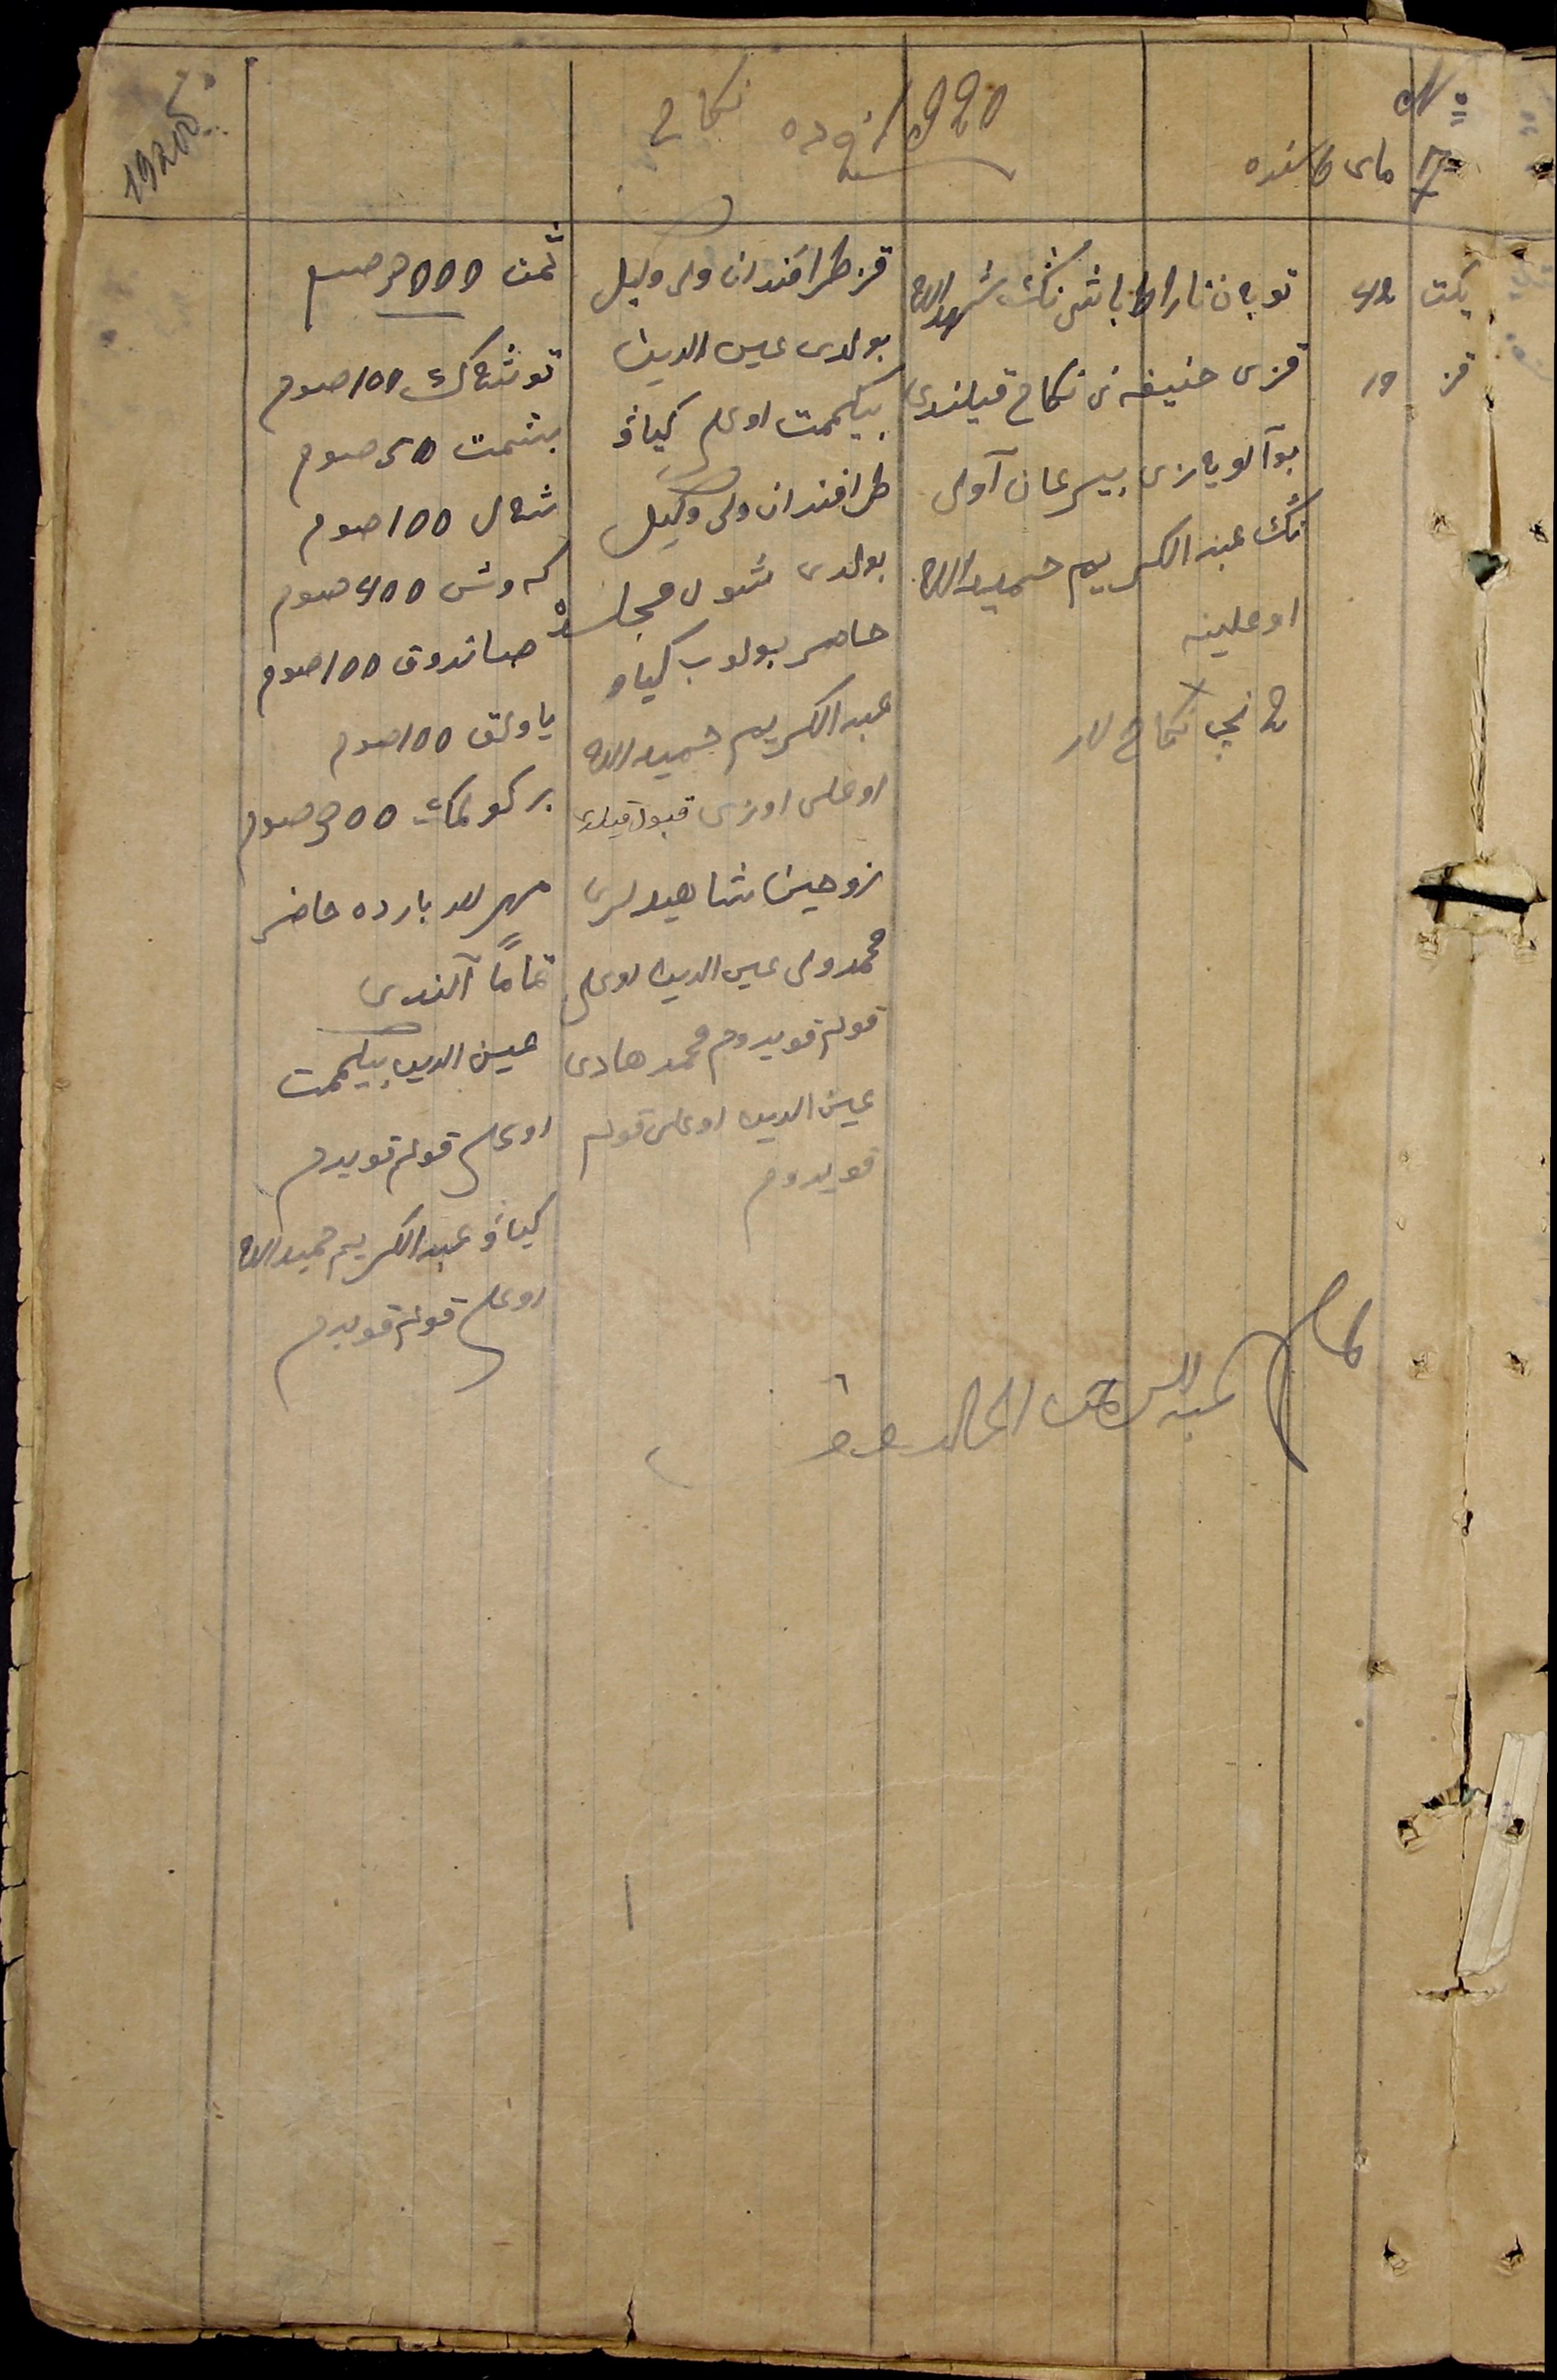 №
17 مای ٦ سنده
1920 نچی ده نکاح
1920
یکت 42
قز 19
توبان ناراط باشی ننک شهرالله
قزی حنیفه نی نکاح قیلندی
بو آلو یازی بیرعان آولی
ننک عبدالکریم حمیدالله
اوغلینه
نچی نکاح لار
قز طرافندان ولی وکیل
بولدی عین الدین
بیکممت اوغلی کیاو
طرافندان ولی وکیل
بولدی شول مجلسده
حاضر بولوب کیاو
عبدالکریم حمیدالله
اوغلی اوزی قبول قیلدی
زوجین شاهیدلری
محمدولی عین الدین اوغلی
قولم قویدوم محمدهادی
عین الدین اوغلی قولم
قویدوم
توشاک 100 صوم
بشمت 50 صوم
شال 100 صوم
که وش 400 صوم
صاندوق 100 صوم
یاولق 100 صوم
بر کولمک 300 صوم
مهرلار بارده حاضر
تماماً آلندی
عین الدین بیکممت
اوغلی قولم قویدم
کیاو عبدالکریم حمیدالله
اوغلی قولم قویدم
امام